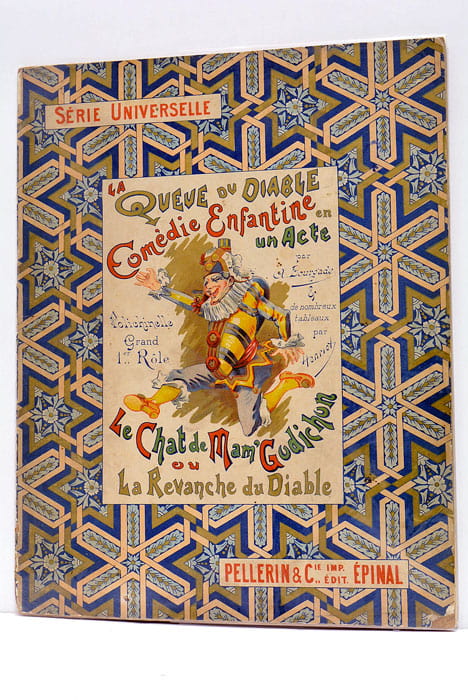 SÉRIE UNIVERSELLE
LA
QUEUE DU DIABLE
Comédie Enfantine en
un Acte
par
&
de nombreux
tableaux
par
Henriot
Polichinelle
Grand
1er Rôle
Le Chat de Mam' Gudichon
ou
La Revanche du Diable
PELLERIN & Cie IMP. ÉDIT. ÉPINAL